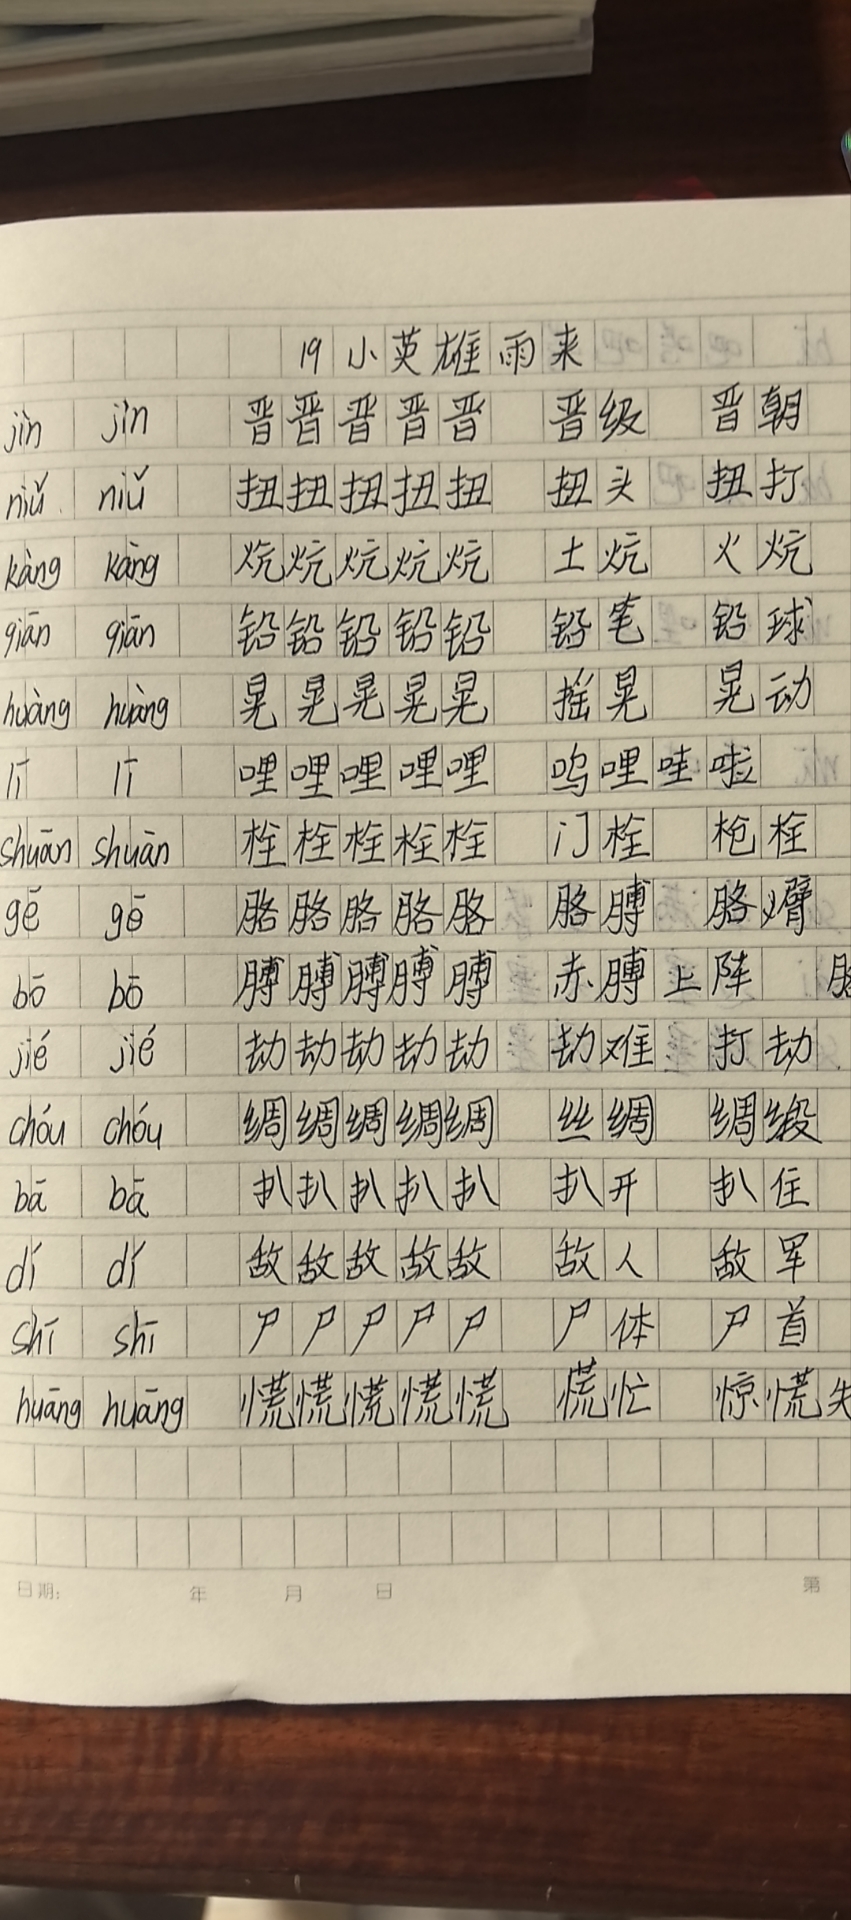 19 小英雄雨来
jìn jìn 晋晋晋晋晋 晋级 晋朝
niǔ niǔ 扭扭扭扭扭 扭头 扭打
kàng kàng 炕炕炕炕炕 土炕 火炕
qiān qiān 铅铅铅铅铅 铅笔 铅球
huàng huàng 晃晃晃晃晃 摇晃 晃动
lī lī 哩哩哩哩哩 呜哩哇啦
shuān shuān 栓栓栓栓栓 门栓 枪栓
gē gē 胳胳胳胳胳 胳膊 胳臂
bō bō 膊膊膊膊膊 赤膊上阵 胳
jié jié 劫劫劫劫劫 劫难 打劫
chóu chóu 绸绸绸绸绸 丝绸 绸缎
bā bā 扒扒扒扒扒 扒开 扒住
dí dí 敌敌敌敌敌 敌人 敌军
shī shī 尸尸尸尸尸 尸体 尸首
huāng huāng 慌慌慌慌慌 慌忙 惊慌失
日期: 年 月 日 第